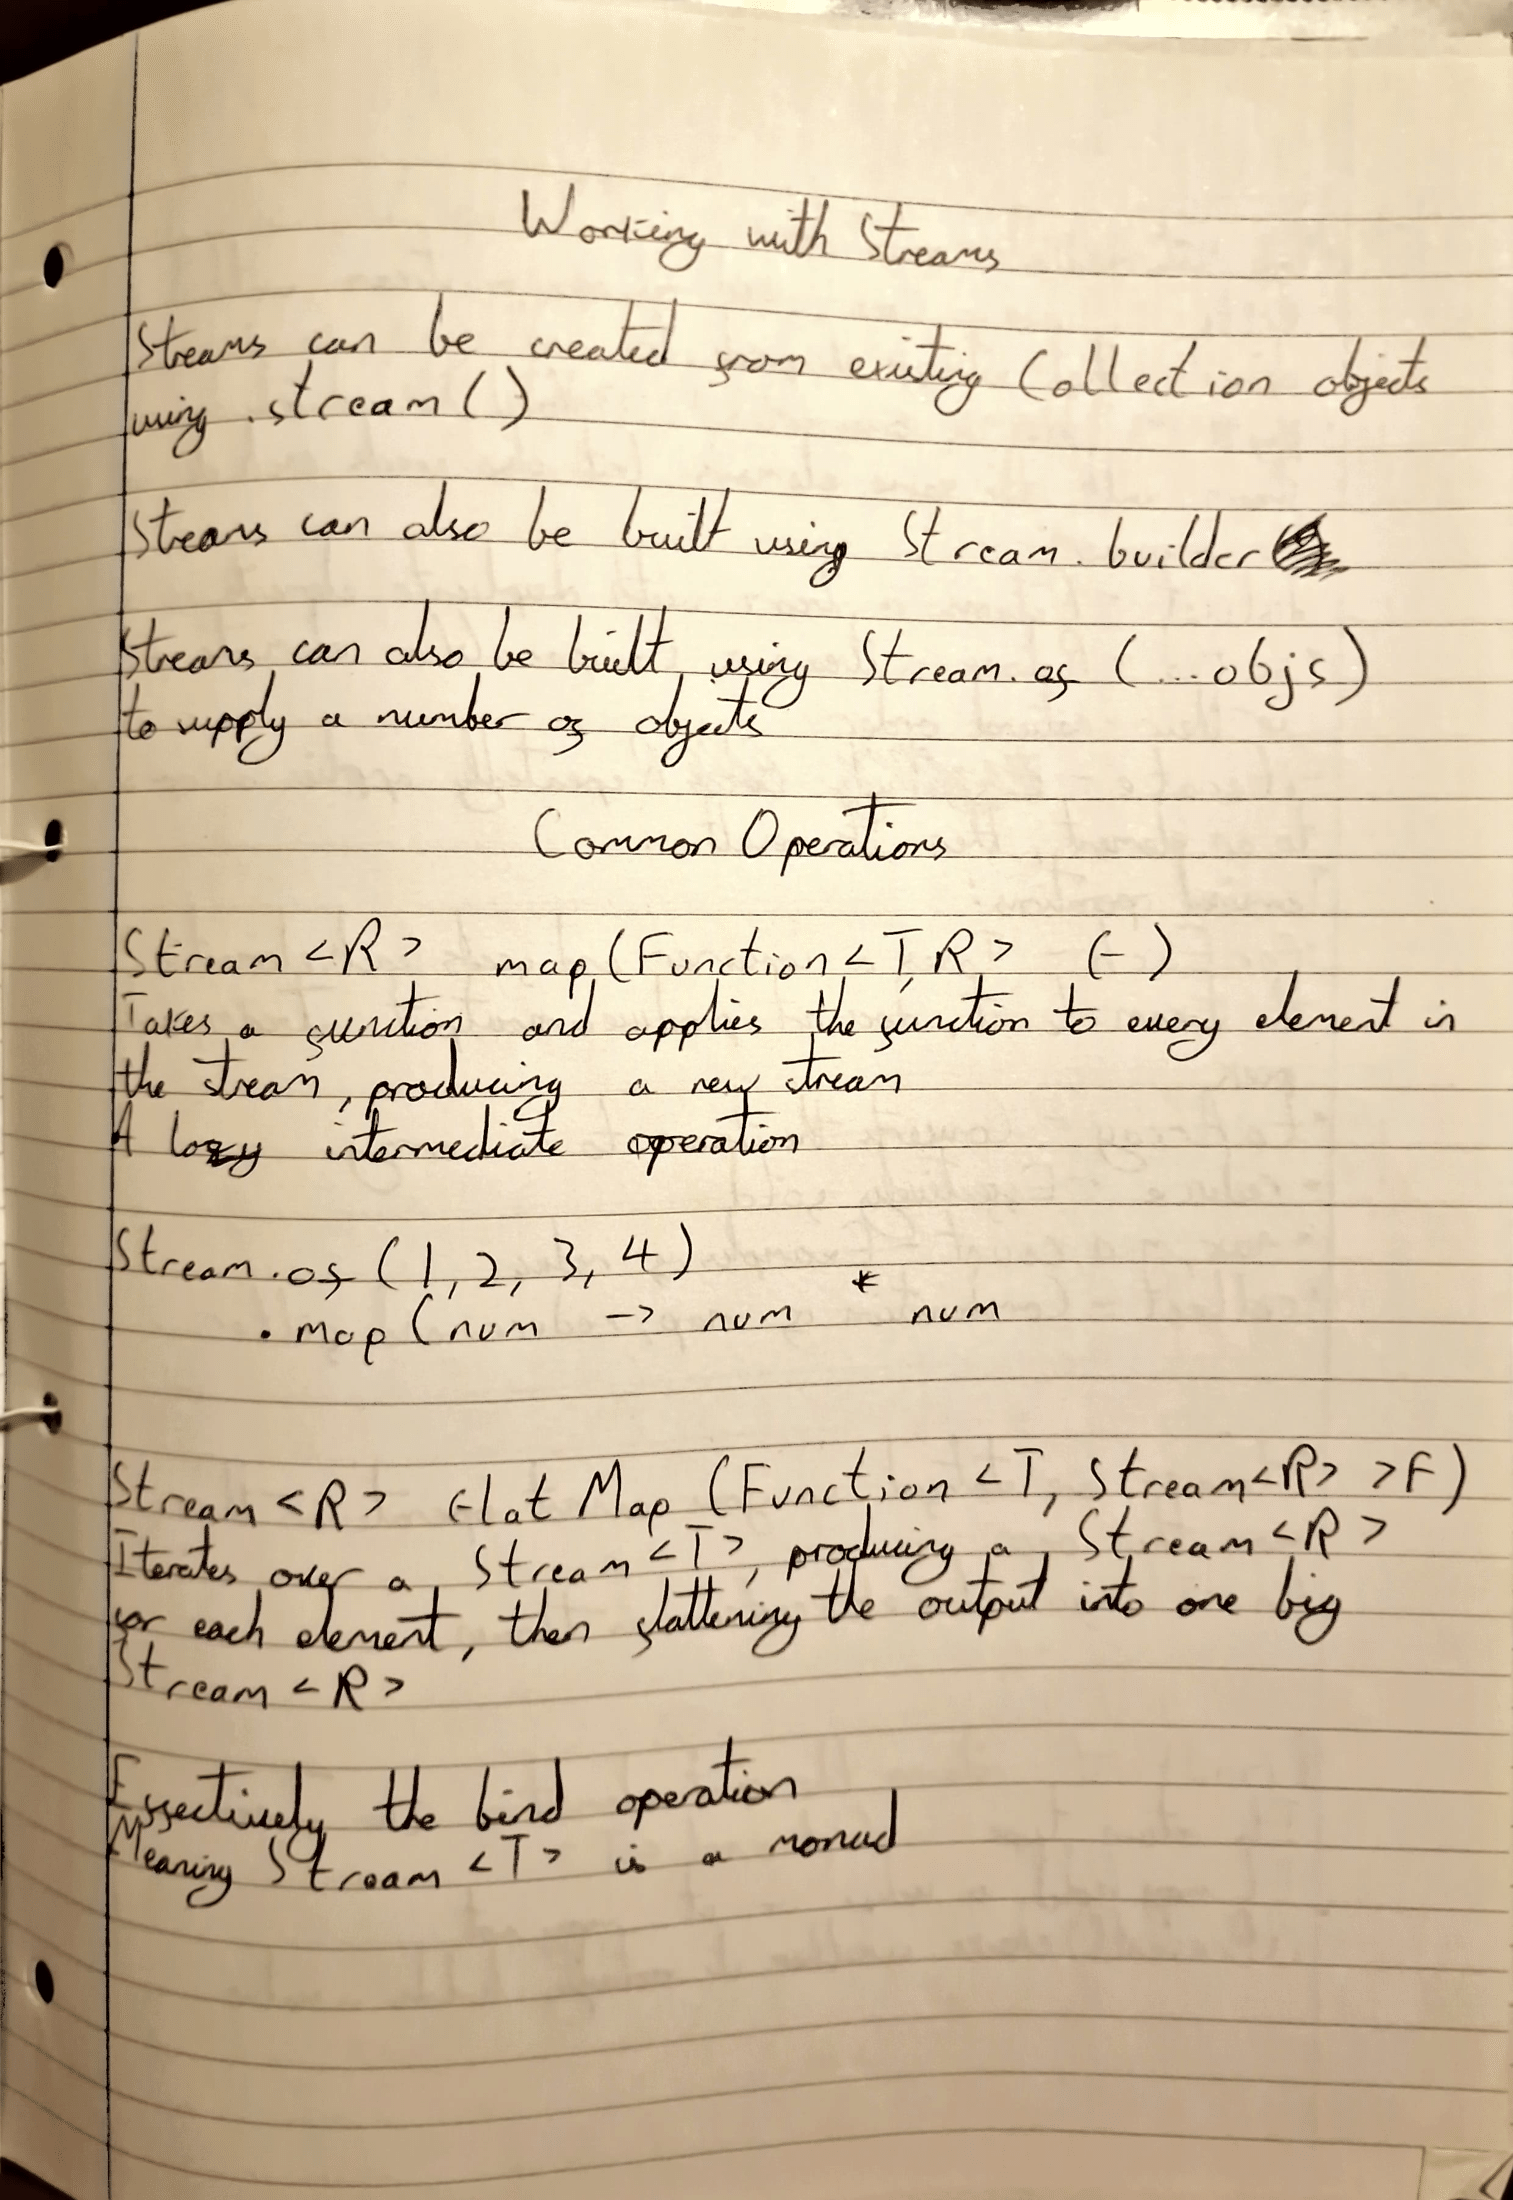 Working with Streams
Streams can be created from existing Collection objects
using .stream()
Streams can also be built using Stream.builder
Streams can also be built using Stream.of (...objs)
to supply a number of objects
Common Operations
Stream<R> map(Function<T,R> f)
Takes a function and applies the function to every element in
the stream, producing a new stream
A lazy intermediate operation
Stream.of (1, 2, 3, 4)
.map (num -> num * num
Stream<R> flatMap (Function<T, Stream<R>>f)
Iterates over a Stream<T>, producing a Stream<R>
for each element, then flattening the output into one big
Stream<R>
Effectively the bind operation
Meaning Stream<T> is a monad